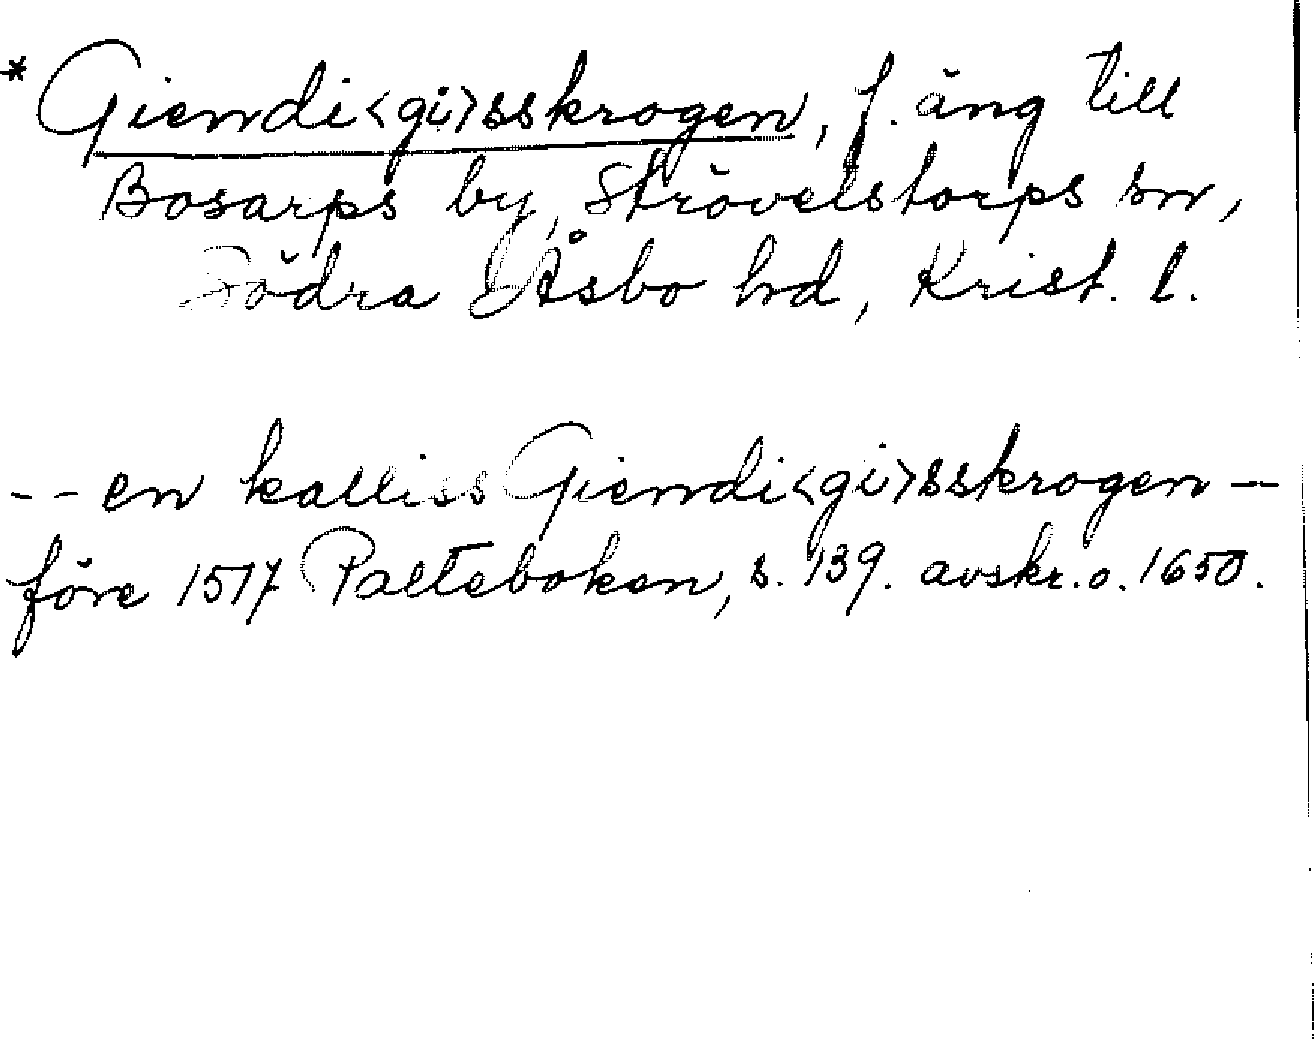 * Giendi<gi>sskrogen, f. äng till
Bosarps by, Strövelstorps sn,
Södra Åsbo hd, Krist. l.
-- en kalliss Giendi<gi>sskrogen --
före 1517 Palteboken, s. 139. avskr. o. 1650.